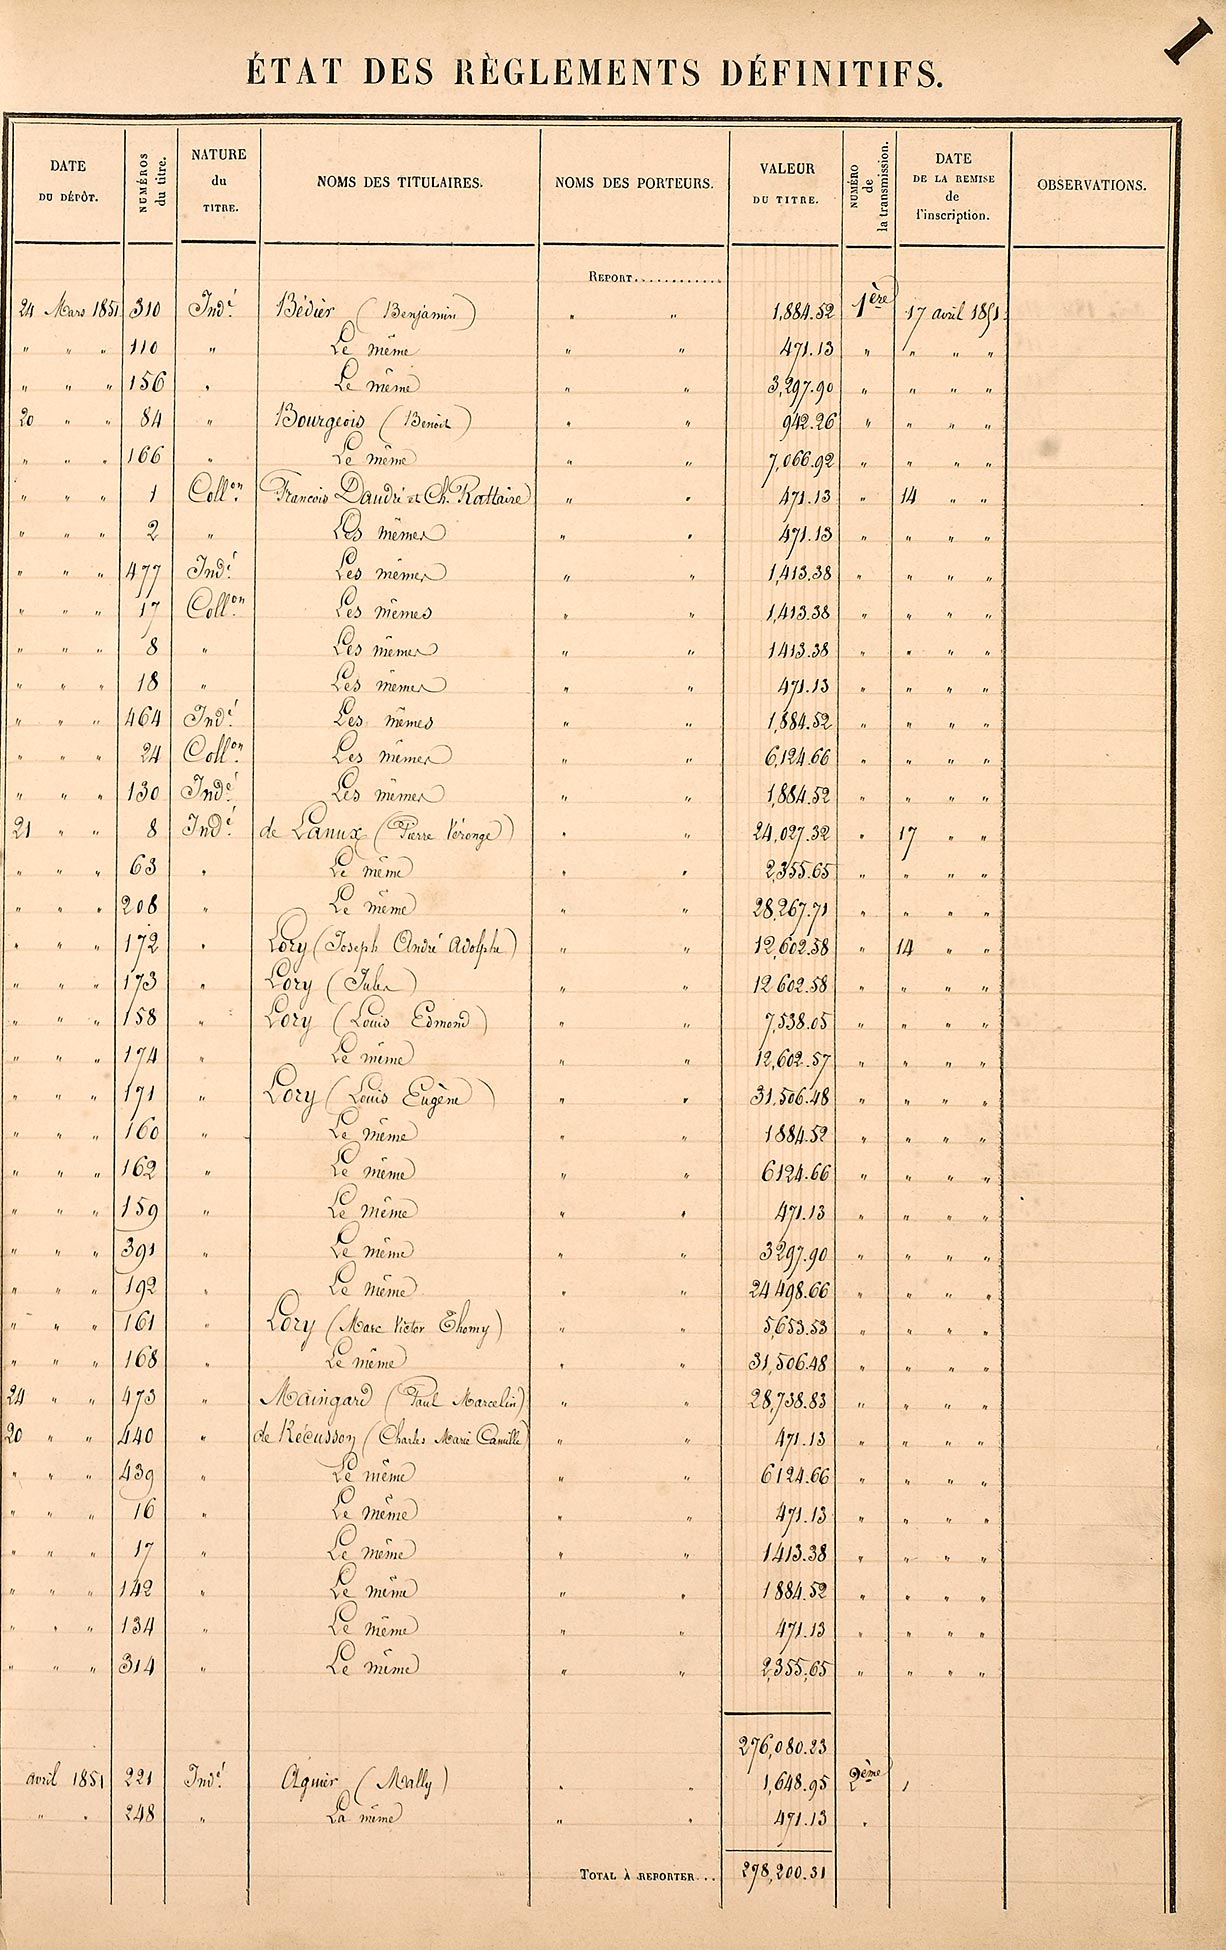 I
ÉTAT DES RÈGLEMENTS DÉFINITIFS.
DATE DU DÉPÔT. | NUMÉROS du titre. | NATURE du TITRE. | NOMS DES TITULAIRES. | NOMS DES PORTEURS. | VALEUR DU TITRE. | NUMÉRO de la transmission. | DATE DE LA REMISE de l'inscription. | OBSERVATIONS.
REPORT............
24 Mars 1851 310 Indé. Bédier (Benjamin) " " 1,884.52 1ère 17 avril 1851.
" " " 110 " Le même " " 471.13 " " " "
" " " 156 " Le même " " 3,297.90 " " " "
20 " " 84 " Bourgeois (Benoit) " " 942.26 " " " "
" " " 166 " Le même " " 7,066.92 " " " "
" " " 1 Collon. François Daudré et Ch. Rattaire " " 471.13 " 14 " "
" " " 2 " Les mêmes " " 471.13 " " " "
" " " 477 Indé. Les mêmes " " 1,413.38 " " " "
" " " 17 Collon. Les mêmes " " 1,413.38 " " " "
" " " 8 " Les mêmes " " 1413.38 " " " "
" " " 18 " Les mêmes " " 471.13 " " " "
" " " 464 Indé. Les mêmes " " 1,884.52 " " " "
" " " 24 Collon. Les mêmes " " 6,124.66 " " " "
" " " 130 Indé. Les mêmes " " 1,884.52 " " " "
21 " " 8 Indé. de Lanux (Pierre Véronge) " " 24,027.32 " 17 " "
" " " 63 " Le même " " 2,355.65 " " " "
" " " 208 " Le même " " 28,267.71 " " " "
" " " 172 " Lory (Joseph André Adolphe) " " 12,602.58 " 14 " "
" " " 173 " Lory (Jules) " " 12602.58 " " " "
" " " 158 " Lory (Louis Edmond) " " 7,538.05 " " " "
" " " 174 " Le même " " 12,602.57 " " " "
" " " 171 " Lory (Louis Eugène) " " 31,506.48 " " " "
" " " 160 " Le même " " 1884.52 " " " "
" " " 162 " Le même " " 6124.66 " " " "
" " " 159 " Le même " " 471.13 " " " "
" " " 391 " Le même " " 3297.90 " " " "
" " " 192 " Le même " " 24498.66 " " " "
" " " 161 " Lory (Marc Victor Thomy) " " 5,653.53 " " " "
" " " 168 " Le même " " 31,506.48 " " " "
24 " " 473 " Maingard (Paul Marcelin) " " 28,738.83 " " " "
20 " " 440 " de Récusson (Charles Marie Camille) " " 471.13 " " " "
" " " 439 " Le même " " 6124.66 " " " "
" " " 16 " Le même " " 471.13 " " " "
" " " 17 " Le même " " 1413.38 " " " "
" " " 142 " Le même " " 1884.52 " " " "
" " " 134 " Le même " " 471.13 " " " "
" " " 314 " Le même " " 2,355,65 " " " "
276,080.23
avril 1851 221 Indé. Aguier (Mally) " " 1,648.95 2ème "
" " 248 " La même " " 471.13 "
TOTAL À REPORTER... 278,200.31